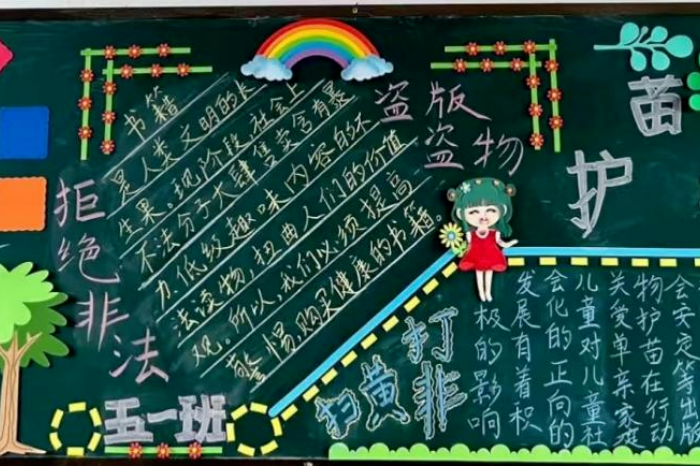 拒绝非法
书籍
是人类文明的长
生果。现阶段社会上
不法分子大肆售卖含有暴
力、低级趣味内容的不
法读物，扭曲人们的价值
观。所以，我们必须提高
警惕，购买健康的书籍。
盗版
盗物
护苗
扫黄
打非
会安定等出版
物护苗在行动
关爱单亲家庭
儿童对儿童社
会化的正向的
发展有着积
极的影响
五一班